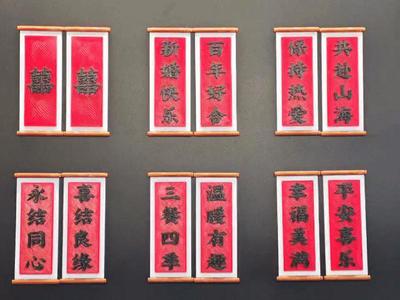 囍
囍
新婚快乐
百年好合
保持热爱
共赴山海
永结同心
喜结良缘
三餐四季
温暖有趣
幸福美满
平安喜乐